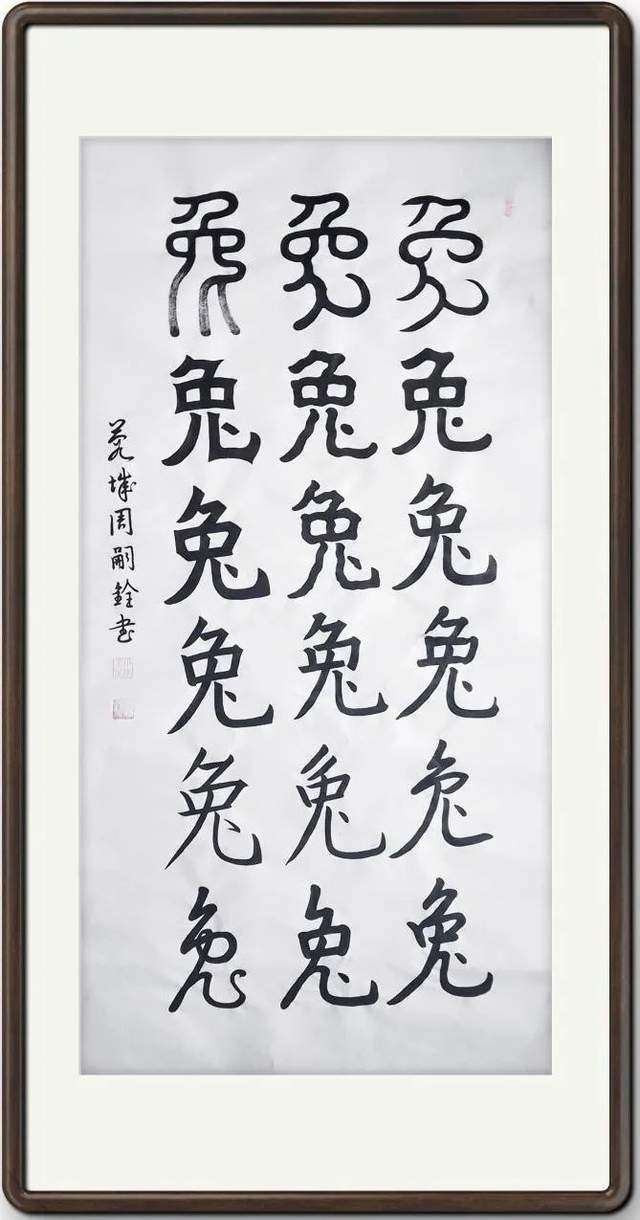 兔兔兔兔兔兔
兔兔兔兔兔兔
兔兔兔兔兔兔
城周嗣銓書